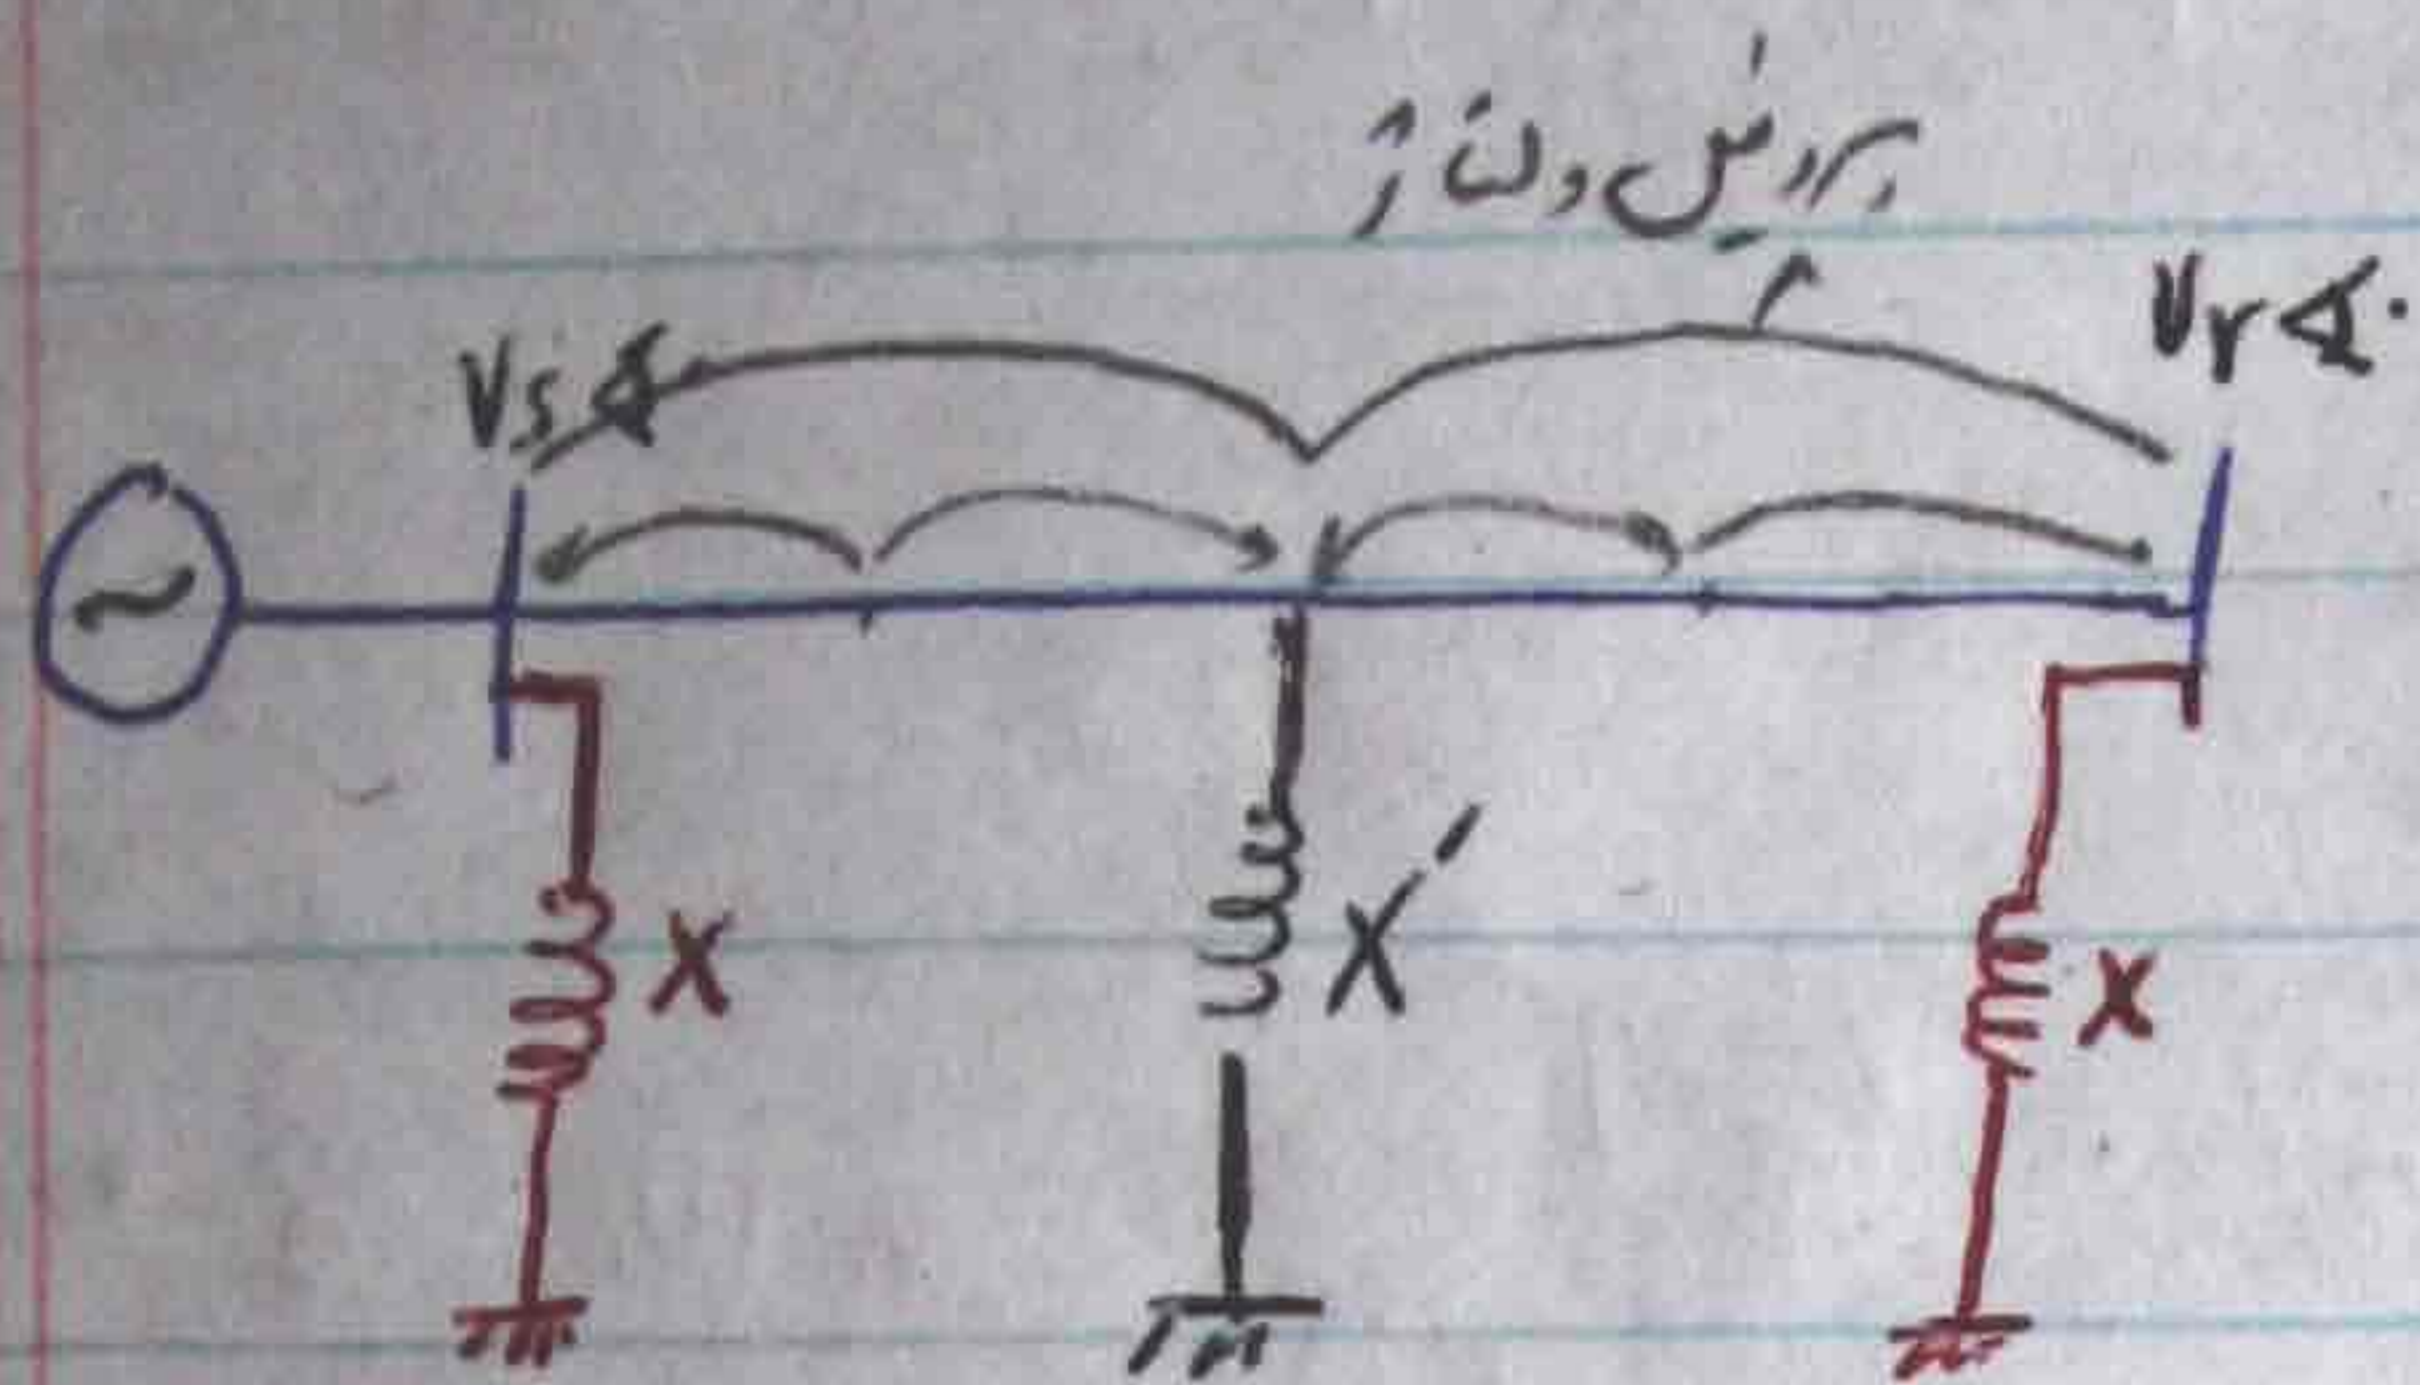 پروفیل ولتاژ
Vs∡
Vr∡۰
~
X
X′
X